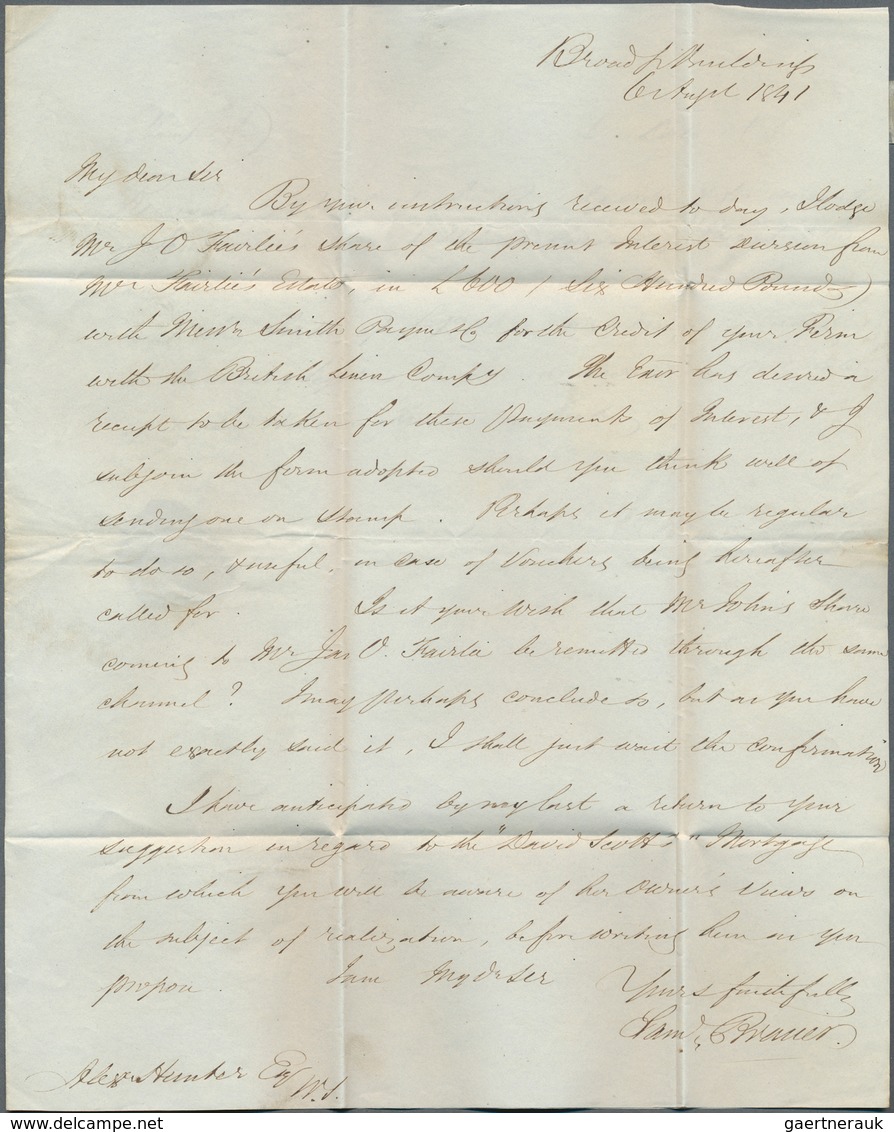 Broad St Buildings
6 Augt 1841
My dear Sir
By your instructions received to day, I lodge
Mr J O Fairlie's Share of the present Interest Division from
Mr Fairlie's Estate, in £600 / Six Hundred Pounds)
with Messrs Smith Payne & Co for the Credit of your Firm
with the British Linen Compy. The Exor has desired a
receipt to be taken for these Payments of Interest, & I
subjoin the form adopted should you think well of
sending one on Stamp. Perhaps it may be regular
to do so, & useful, in case of Vouchers being hereafter
called for. Is it your wish that Mr John's Share
coming to Mr Jas O. Fairlie be remitted through the same
channel? I may perhaps conclude so, but as you have
not exactly said it, I shall just wait the confirmation
I have anticipated by my last a return to your
suggestion in regard to the "David Scott's" Mortgage
from which you will be aware of her Owner's Views on
the subject of realization, before writing him as you
propose. I am My dr Sir
Yours faithfully
Saml.
Alexr Hunter Esq
W.S.
gaertnerauk